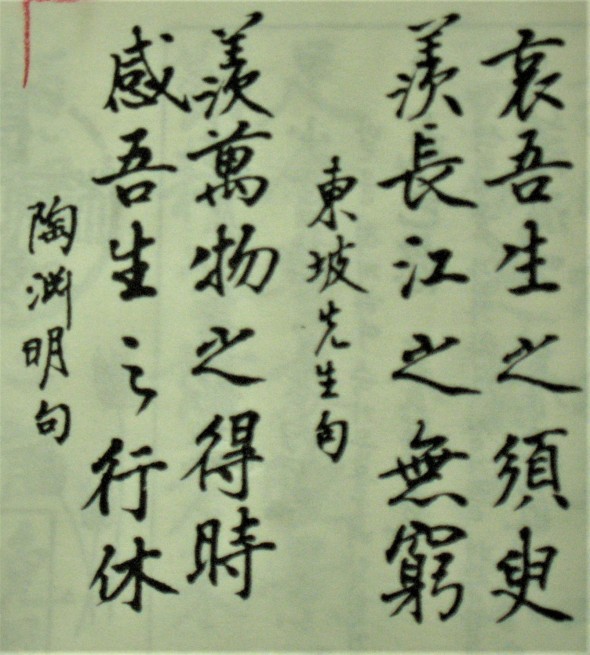 哀吾生之須臾
羨長江之無窮
東坡先生句
羨萬物之得時
感吾生之行休
陶渊明句